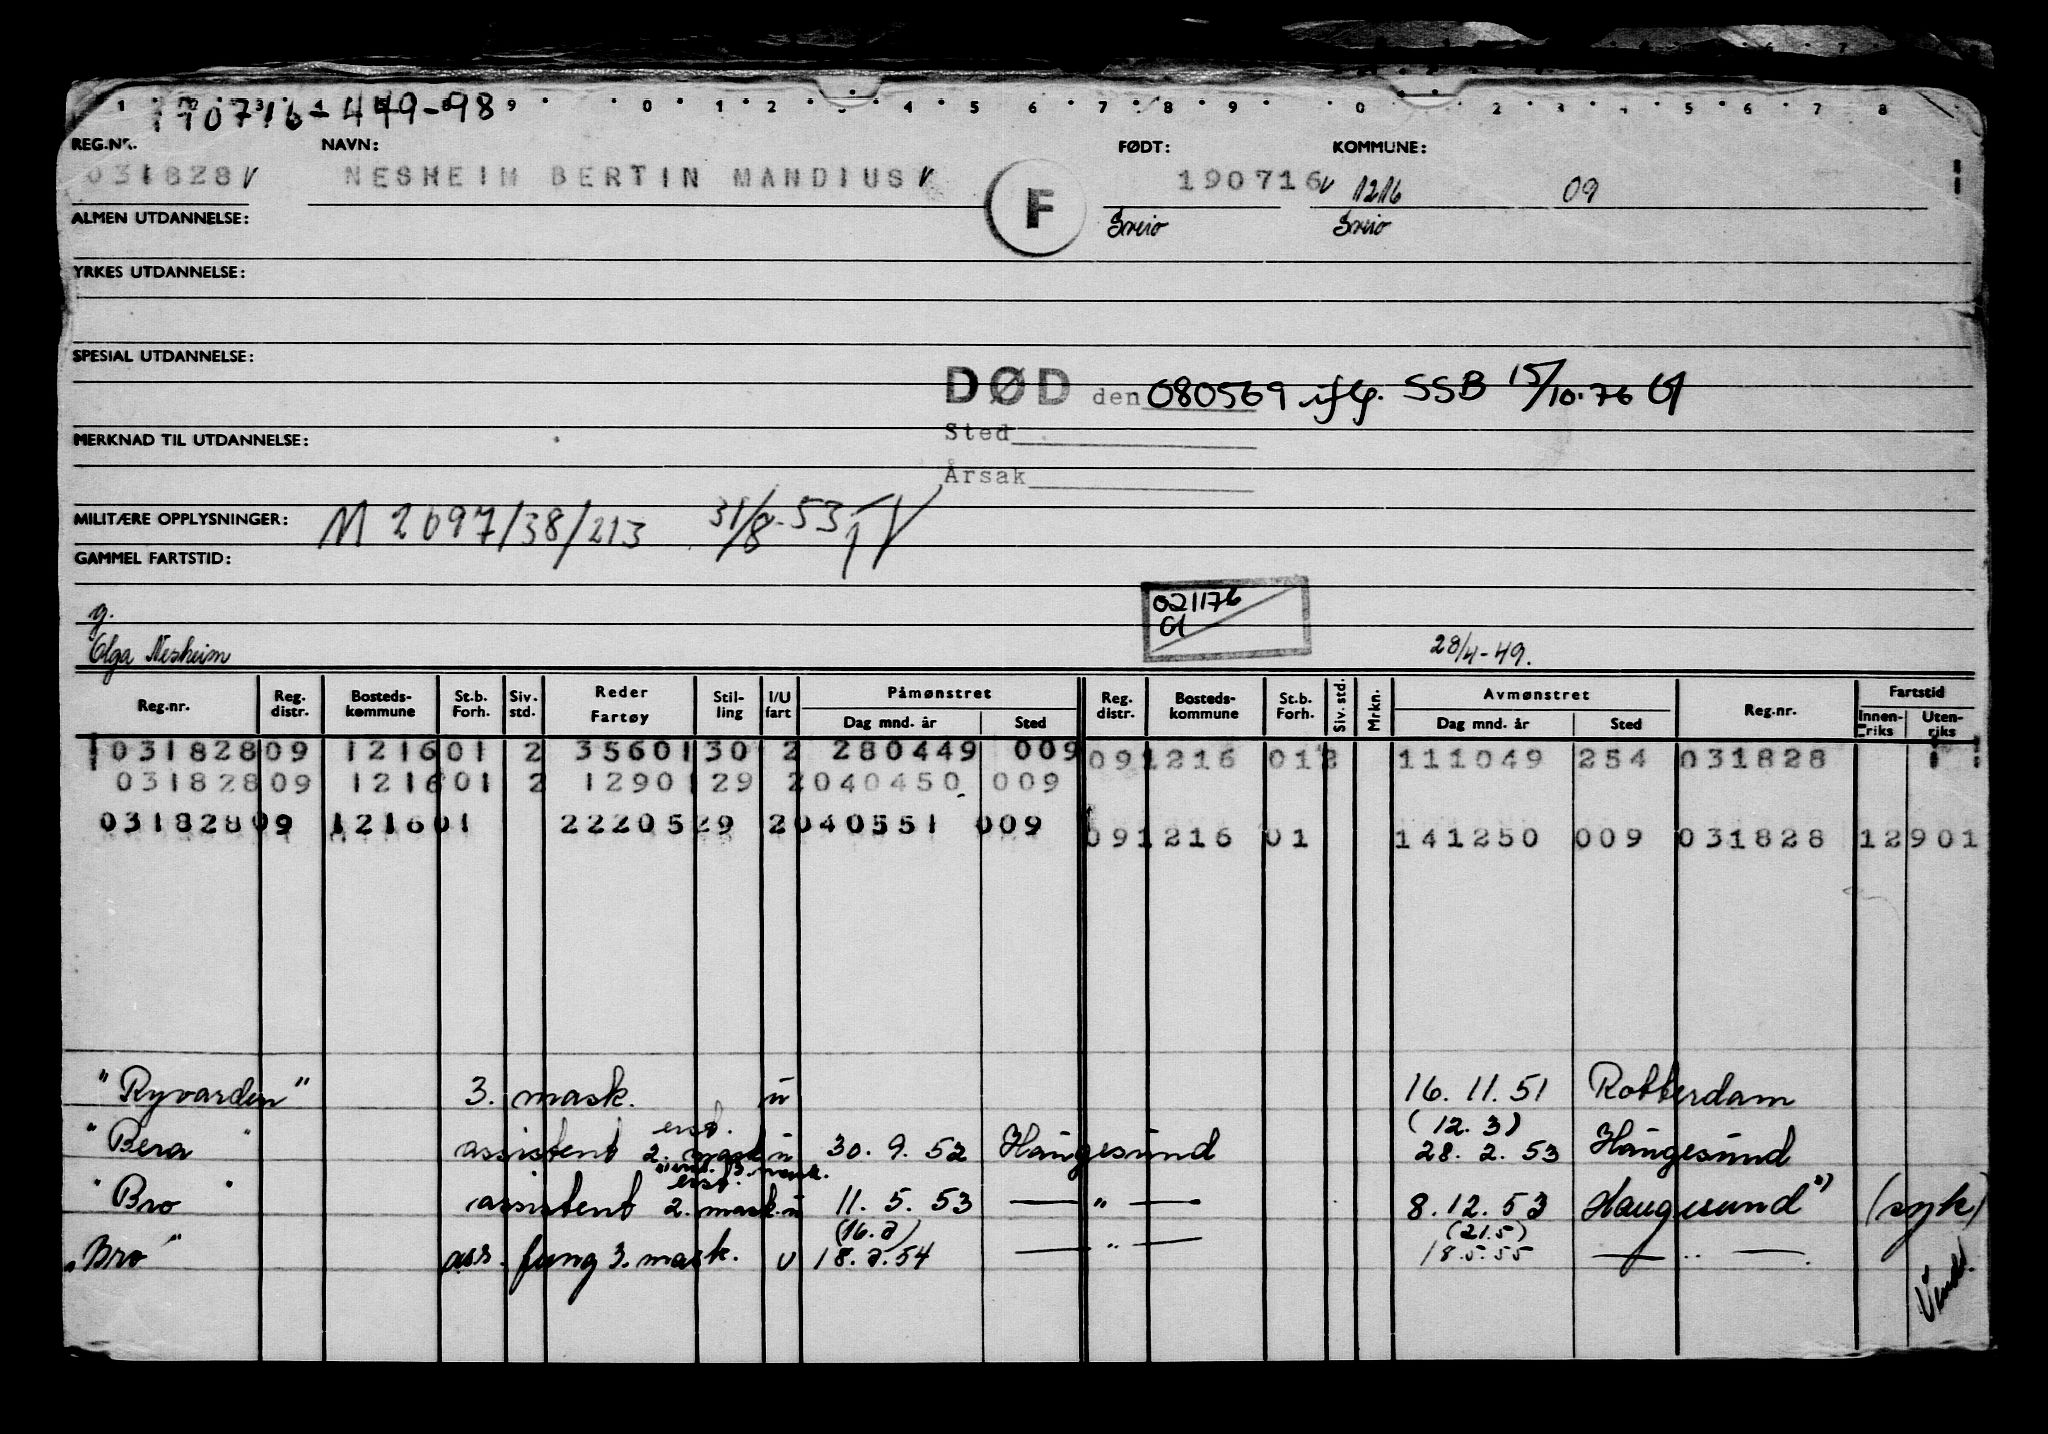 170716-449-98
REG.NR. NAVN: FØDT: KOMMUNE:
031828 v NESHEIM BERTIN MANDIUS v F 190716 v 1216 09
ALMEN UTDANNELSE: Sveio Sveio
YRKES UTDANNELSE:
SPESIAL UTDANNELSE:
DØD den 080569 iflg. SSB 15/10.76 Gl
MERKNAD TIL UTDANNELSE: Sted
Årsak
MILITÆRE OPPLYSNINGER: M 2097/38/213 31/8-53
GAMMEL FARTSTID:
g. 021176
Gl
Olga Nesheim 28/4-49.
Reg.nr. Reg. distr. Bosteds-kommune St.b. Forh. Siv. std. Reder Fartøy Stil-ling I/U fart Påmønstret Dag mnd. år Sted Reg. distr. Bosteds-kommune St.b. Forh. Siv. std. Mrkn. Avmønstret Dag mnd. år Sted Reg.nr. Fartstid Innen-riks Uten-riks
031828 09 1216 01 2 35601 30 2 280449 009 09 1216 01 2 111049 254 031828
031828 09 1216 01 2 12901 29 2 040450 009
031828 09 1216 01 22205 29 2 040551 009 09 1216 01 141250 009 031828 12901
"Ryvarden" 3. mask. u 16. 11. 51 Rotterdam
erst. (12. 3)
"Bera" assistent 2. mask u 30. 9. 52 Haugesund 28. 2. 53 Haugesund
3. mask.
erst.
"Bro" assistent 2. mask. u 11. 5. 53 — " — 8. 12. 53 Haugesund (syk)
(16.2) (21.5)
"Bro" ass. fung 3. mask. u 18. 2. 54 — " — 18. 5. 55 — " —